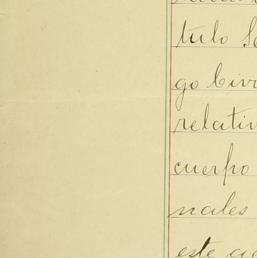 tulo
go Civ
relativ
cuerpo
nales
este